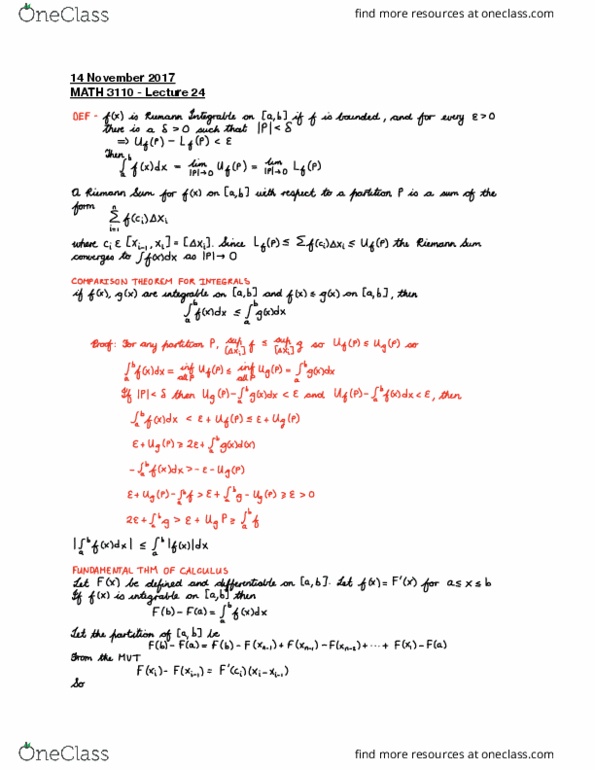 OneClass
find more resources at oneclass.com
14 November 2017
MATH 3110 - Lecture 24
DEF - f(x) is Riemann Integrable on [a,b] if f is bounded, and for every ε>0
there is a δ>0 such that |P|<δ
⇒ U_f(P) - L_f(P) < ε
Then,
∫_a^b f(x)dx = lim_{|P|→0} U_f(P) = lim_{|P|→0} L_f(P)
A Riemann Sum for f(x) on [a,b] with respect to a partition P is a sum of the
form
Σ_{i=1}^n f(c_i)Δx_i
where c_i ε [x_{i-1}, x_i] = [Δx_i]. Since L_f(P) ≤ Σf(c_i)Δx_i ≤ U_f(P) the Riemann Sum
converges to ∫f(x)dx as |P|→0
COMPARISON THEOREM FOR INTEGRALS
if f(x), g(x) are integrable on [a,b] and f(x) ≤ g(x) on [a,b], then
∫_a^b f(x)dx ≤ ∫_a^b g(x)dx
Proof: For any partition P, sup_{[Δx_i]} f ≤ sup_{[Δx_i]} g so U_f(P) ≤ U_g(P) so
∫_a^b f(x)dx = inf_{all P} U_f(P) ≤ inf_{all P} U_g(P) = ∫_a^b g(x)dx
If |P|<δ then U_g(P) - ∫_a^b g(x)dx < ε and U_f(P) - ∫_a^b f(x)dx < ε, then
∫_a^b f(x)dx < ε + U_f(P) ≤ ε + U_g(P)
ε + U_g(P) ≥ 2ε + ∫_a^b g(x)d(x)
-∫_a^b f(x)dx > -ε - U_g(P)
ε + U_g(P) - ∫_a^b f > ε + ∫_a^b g - U_g(P) ≥ ε > 0
2ε + ∫_a^b g > ε + U_g P ≥ ∫_a^b f
|∫_a^b f(x)dx| ≤ ∫_a^b |f(x)|dx
FUNDAMENTAL THM OF CALCULUS
Let F(x) be defined and differentiable on [a,b]. Let f(x) = F'(x) for a ≤ x ≤ b
If f(x) is integrable on [a,b] then
F(b) - F(a) = ∫_a^b f(x)dx
Let the partition of [a,b] be
F(b) - F(a) = F(b) - F(x_{n-1}) + F(x_{n-1}) - F(x_{n-2}) + ··· + F(x_1) - F(a)
From the MVT
F(x_i) - F(x_{i-1}) = F'(c_i)(x_i - x_{i-1})
So
OneClass
find more resources at oneclass.com